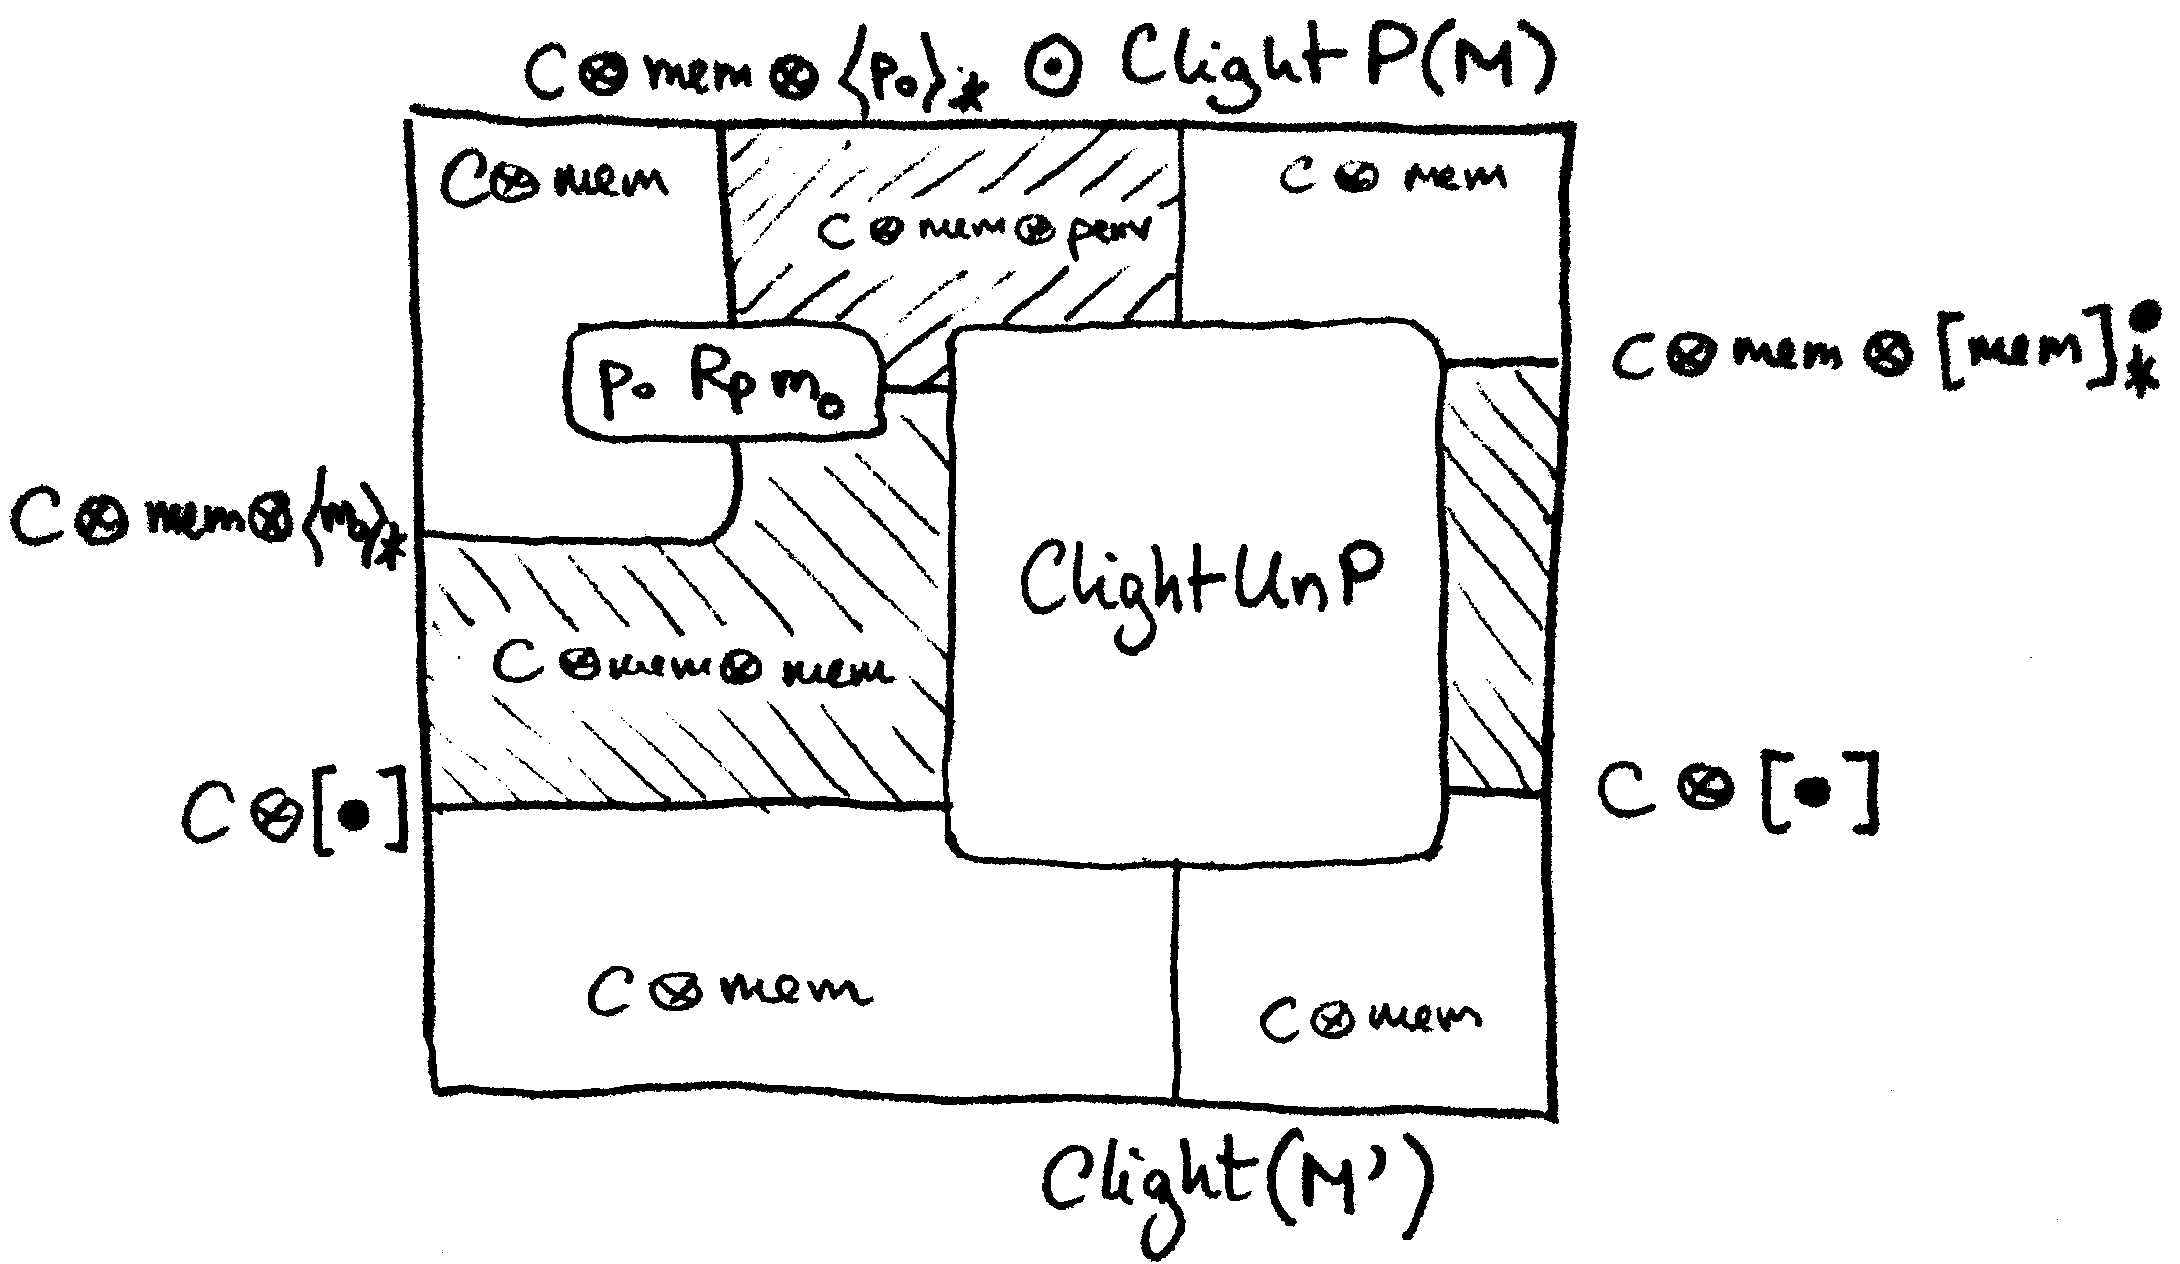 C ⊗ mem ⊗ ⟨p₀⟩* ⊙ ClightP(M)
C ⊗ mem
C ⊗ mem
C ⊗ mem ⊗ penv
p₀ Rp m₀
C ⊗ mem ⊗ [mem]•*
C ⊗ mem ⊗ ⟨m₀⟩*
ClightUnP
C ⊗ mem ⊗ mem
C ⊗ [•]
C ⊗ [•]
C ⊗ mem
C ⊗ mem
Clight(M')